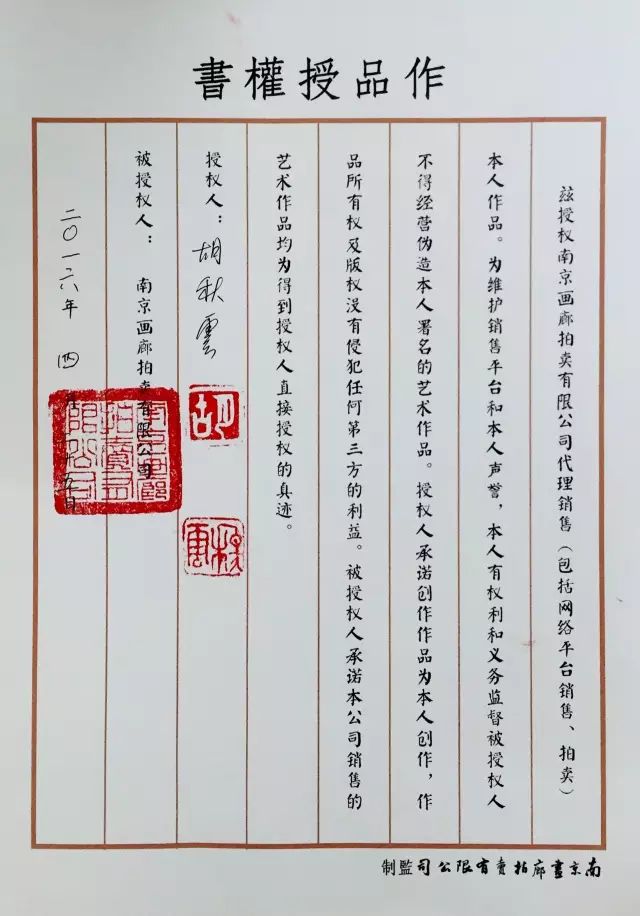 作品授權書
兹授权南京画廊拍卖有限公司代理销售（包括网络平台销售、拍卖）
本人作品。为维护销售平台和本人声誉，本人有权利和义务监督被授权人
不得经营伪造本人署名的艺术作品。授权人承诺创作作品为本人创作，作
品所有权及版权没有侵犯任何第三方的利益。被授权人承诺本公司销售的
艺术作品均为得到授权人直接授权的真迹。
授权人：胡秋雲
胡
被授权人：南京画廊拍卖有限公司
二〇一六年 四月
南京畫廊拍賣有限公司監制